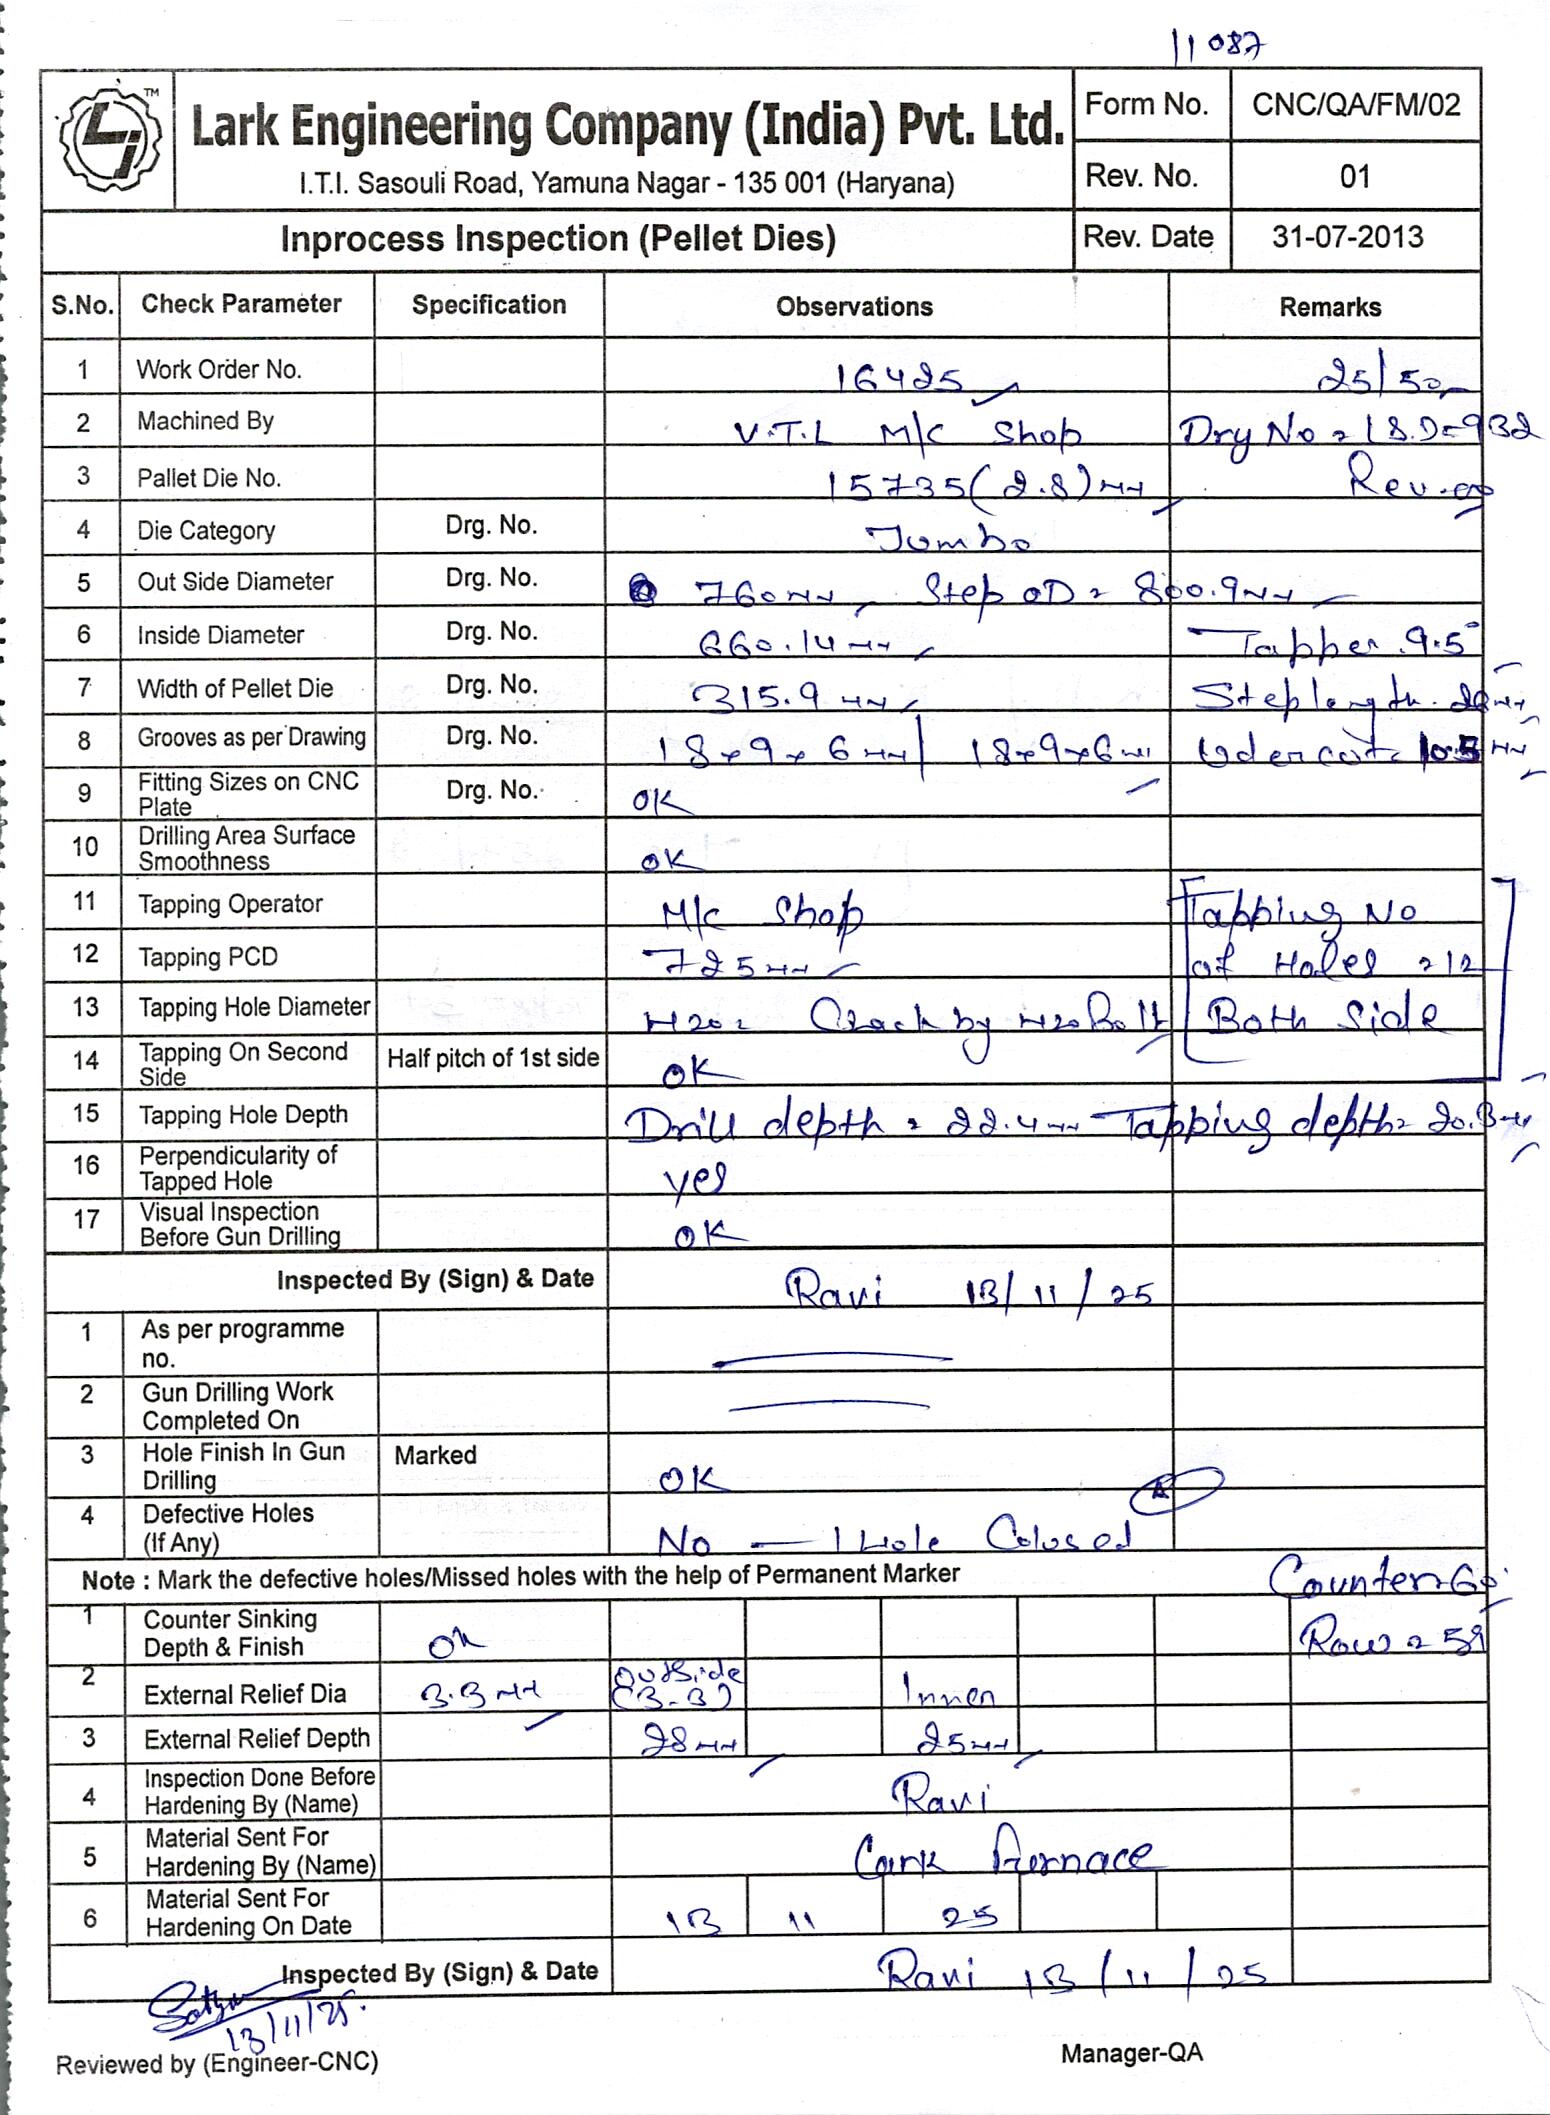 11087
Lark Engineering Company (India) Pvt. Ltd.
I.T.I. Sasouli Road, Yamuna Nagar - 135 001 (Haryana)
Form No. CNC/QA/FM/02
Rev. No. 01
Inprocess Inspection (Pellet Dies)
Rev. Date 31-07-2013
S.No. Check Parameter Specification Observations Remarks
1 Work Order No. 16425 25/50
2 Machined By V.T.L M/C Shop Dry No =
3 Pallet Die No. 15735(2.8)MM Rev.00
4 Die Category Drg. No. Jumbo
5 Out Side Diameter Drg. No. 760MM Step OD = 800.9MM
6 Inside Diameter Drg. No. 660.14MM Tapper 9.5°
7 Width of Pellet Die Drg. No. 315.9 MM Step length.
8 Grooves as per Drawing Drg. No. 18x9x6MM| 18x9x6MM Udercut = 10.5 MM
9 Fitting Sizes on CNC Plate Drg. No. OK
10 Drilling Area Surface Smoothness OK
11 Tapping Operator M/C Shop Tapping No
12 Tapping PCD 725MM of Holes = 12
13 Tapping Hole Diameter M20 = by M20 Bolt Both Side
14 Tapping On Second Side Half pitch of 1st side OK
15 Tapping Hole Depth Drill depth = 22.4MM Tapping depth = 20.3MM
16 Perpendicularity of Tapped Hole yes
17 Visual Inspection Before Gun Drilling OK
Inspected By (Sign) & Date Ravi 13/11/25
1 As per programme no.
2 Gun Drilling Work Completed On
3 Hole Finish In Gun Drilling Marked OK
4 Defective Holes (If Any) No — 1 Hole Colosed
Note : Mark the defective holes/Missed holes with the help of Permanent Marker Counter=60°
1 Counter Sinking Depth & Finish OK Row = 59
2 External Relief Dia 3.3MM OutSide (3.3) Inner
3 External Relief Depth 28MM 25MM
4 Inspection Done Before Hardening By (Name) Ravi
5 Material Sent For Hardening By (Name) Furnace
6 Material Sent For Hardening On Date 13 11 25
Inspected By (Sign) & Date Ravi 13/11/25
13/11/25.
Reviewed by (Engineer-CNC) Manager-QA